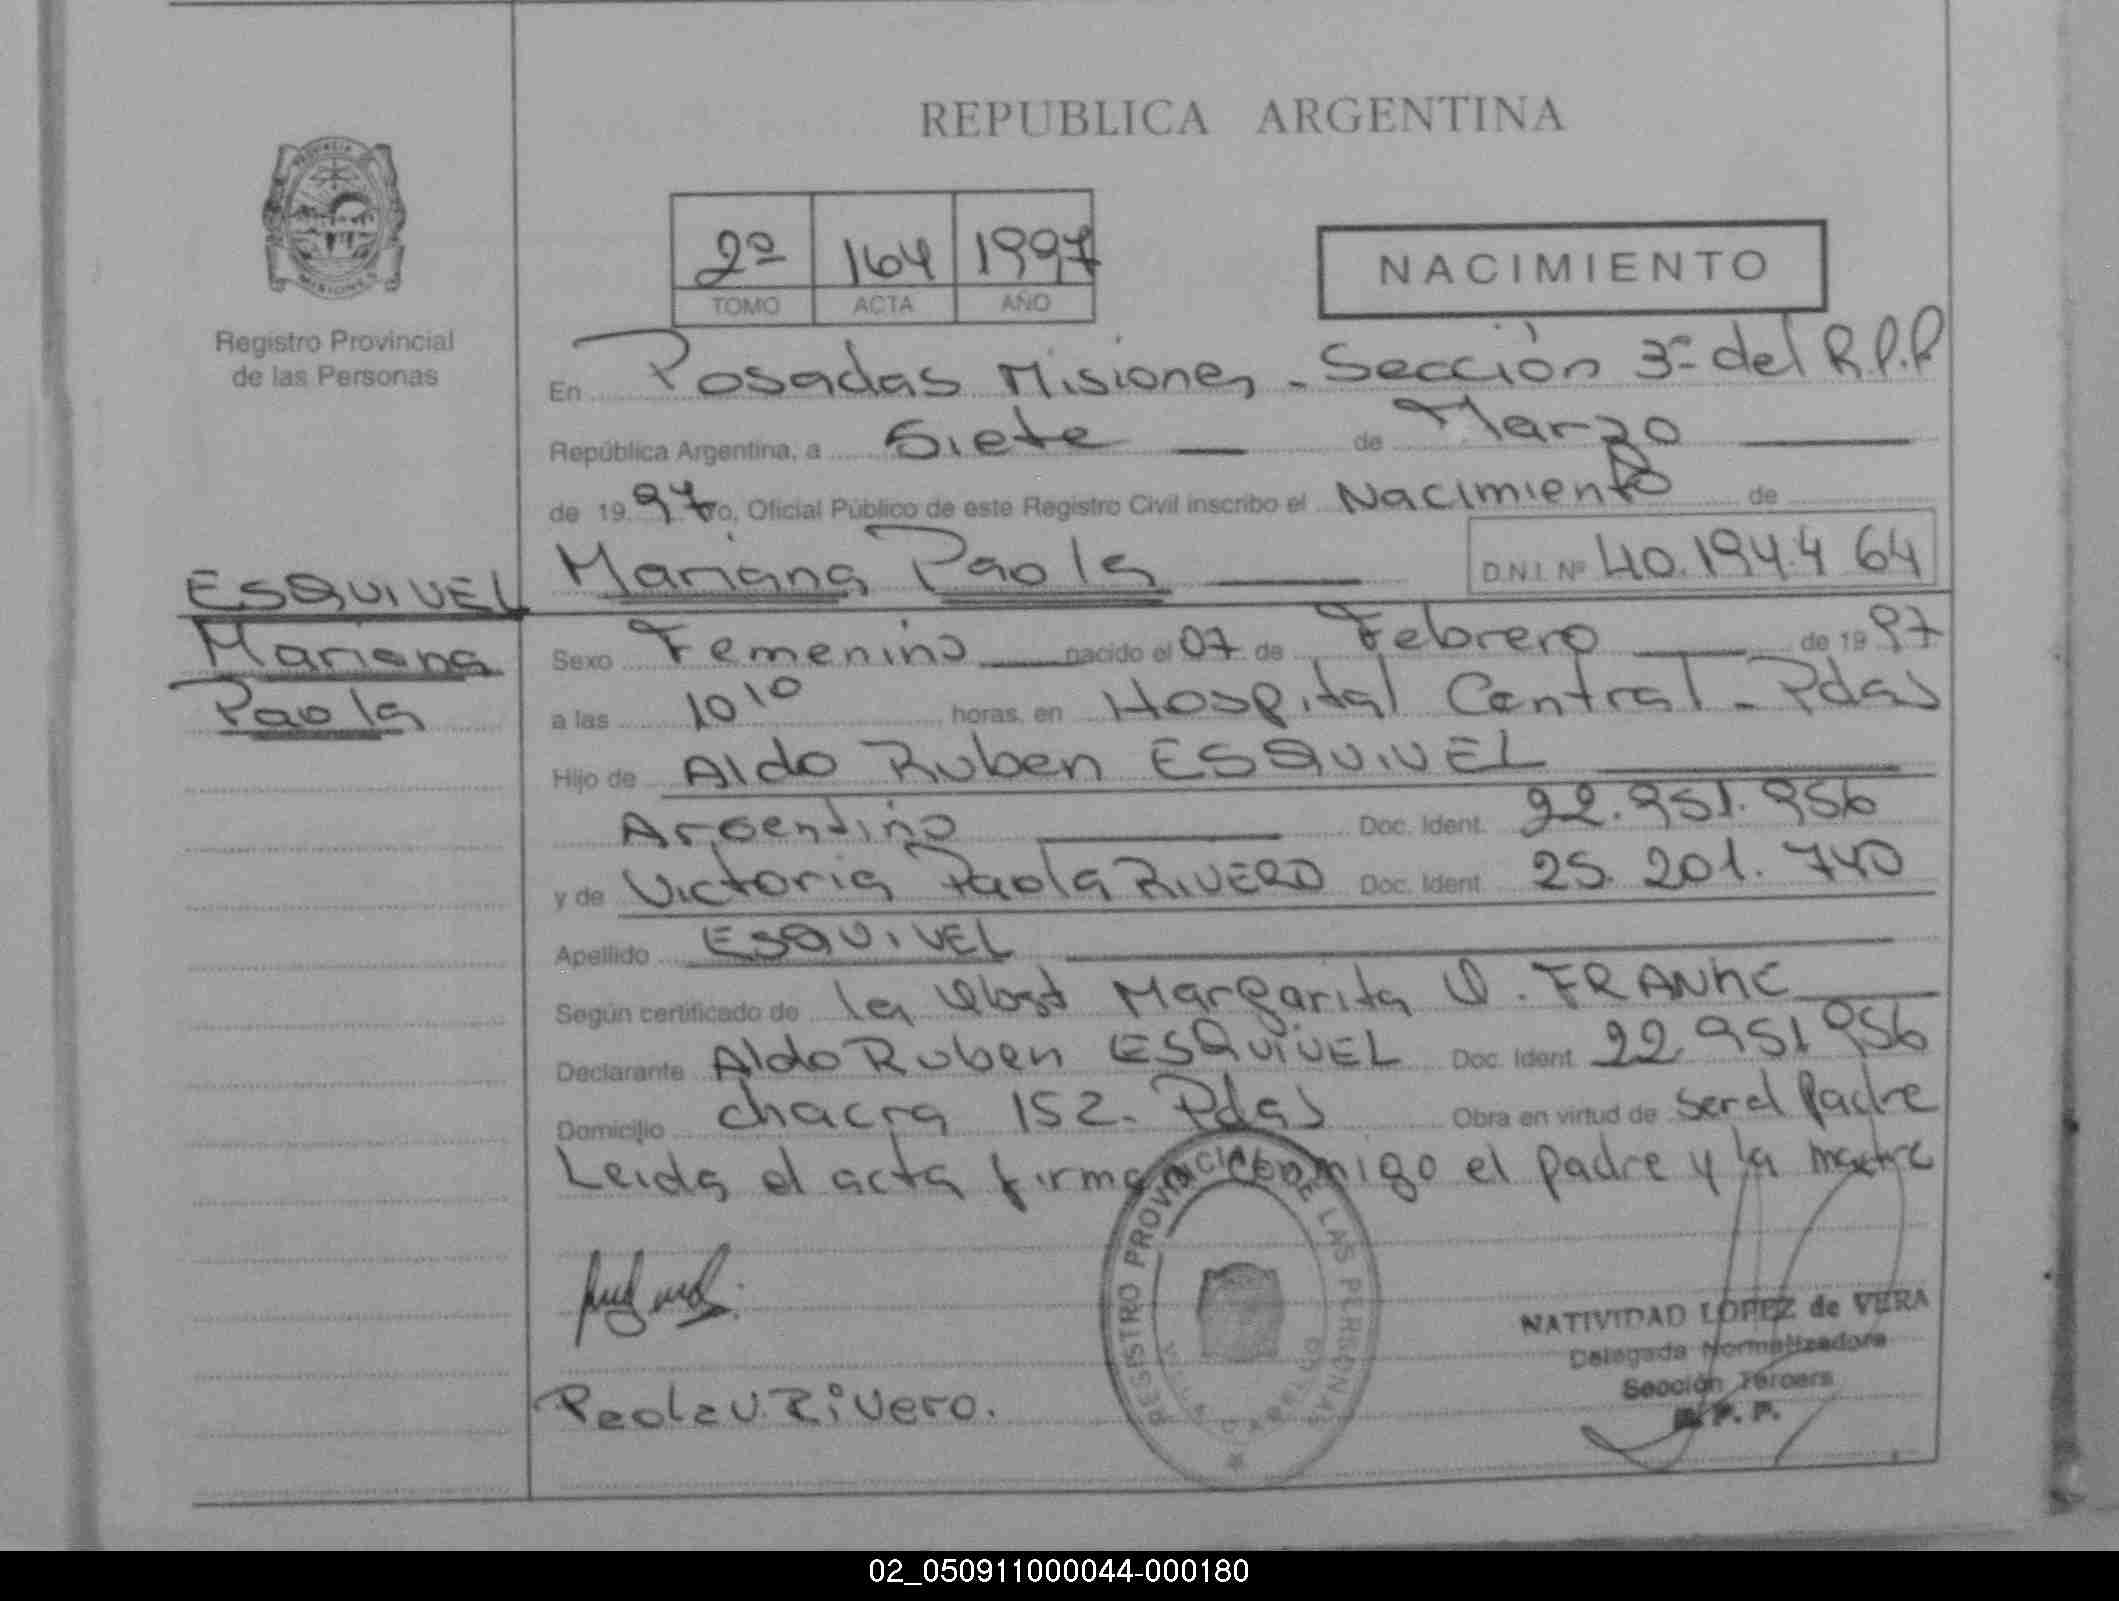 REPUBLICA ARGENTINA
PROVINCIA
MISIONES
Registro Provincial
de las Personas
2º 164 1997
TOMO ACTA AÑO
NACIMIENTO
En Posadas Misiones - Sección 3ª del R.P.P
República Argentina, a Siete de Marzo
de 1997 Yo, Oficial Público de este Registro Civil inscribo el Nacimiento de
Mariana Paola D.N.I. Nº 40.194.464
ESQUIVEL
Mariana
Paola
Sexo Femenino nacido el 07 de Febrero de 1997
a las 10 10 horas, en Hospital Central - Pdas
Hijo de Aldo Ruben ESQUIVEL
Argentino Doc. Ident. 22.951.956
y de Victoria Paola RIVERO Doc. Ident. 25.201.740
Apellido ESQUIVEL
Según certificado de la Obst Margarita FRANKE
Declarante Aldo Ruben ESQUIVEL Doc. Ident. 22.951.956
Domicilio chacra 152 - Pdas Obra en virtud de ser el padre
Leida el acta firman conmigo el padre y la madre
REGISTRO PROVINCIAL DE LAS PERSONAS
Paola V. Rivero.
NATIVIDAD LOPEZ de VERA
Delegada Normalizadora
Sección Tercera
R. P. P.
02_050911000044-000180